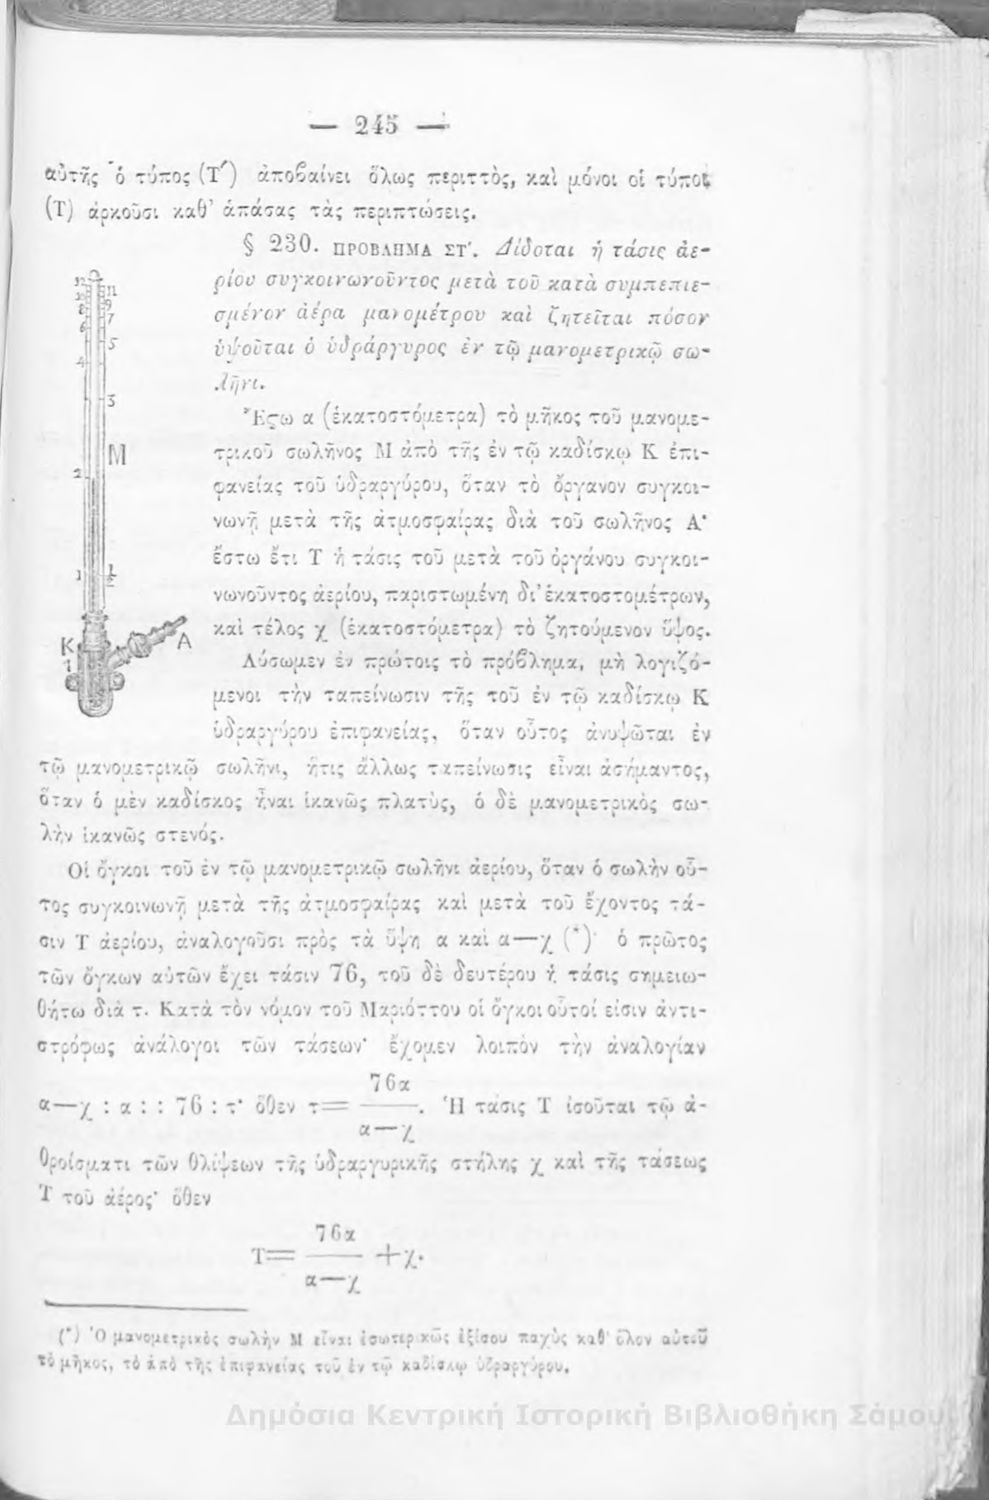 — 245 —
αὐτῆς ὁ τύπος (Τ΄) ἀποβαίνει ὅλως περιττὸς, καὶ μόνοι οἱ τύποι
(Τ) ἀρκοῦσι καθ' ἁπάσας τὰς περιπτώσεις.
§ 230. ΠΡΟΒΛΗΜΑ ΣΤ'. Δίδοται ἡ τάσις ἀε-
ρίου συγκοινωνοῦντος μετὰ τοῦ κατὰ συμπεπιε-
σμένον ἀέρα μανομέτρου καὶ ζητεῖται πόσον
ὑψοῦται ὁ ὑδράργυρος ἐν τῷ μανομετρικῷ σω-
λῆνι.
Ἔστω α (ἑκατοστόμετρα) τὸ μῆκος τοῦ μανομε-
τρικοῦ σωλῆνος Μ ἀπὸ τῆς ἐν τῷ καδίσκῳ Κ ἐπι-
φανείας τοῦ ὑδραργύρου, ὅταν τὸ ὄργανον συγκοι-
νωνῇ μετὰ τῆς ἀτμοσφαίρας διὰ τοῦ σωλῆνος Α·
ἔστω ἔτι Τ ἡ τάσις τοῦ μετὰ τοῦ ὀργάνου συγκοι-
νωνοῦντος ἀερίου, παριστωμένη δι' ἑκατοστομέτρων,
καὶ τέλος χ (ἑκατοστόμετρα) τὸ ζητούμενον ὕψος.
Λύσωμεν ἐν πρώτοις τὸ πρόβλημα, μὴ λογιζό-
μενοι τὴν ταπείνωσιν τῆς τοῦ ἐν τῷ καδίσκῳ Κ
ὑδραργύρου ἐπιφανείας, ὅταν οὗτος ἀνυψῶται ἐν
τῷ μανομετρικῷ σωλῆνι, ἥτις ἄλλως ταπείνωσις εἶναι ἀσήμαντος,
ὅταν ὁ μὲν καδίσκος ἦναι ἱκανῶς πλατὺς, ὁ δὲ μανομετρικὸς σω-
λὴν ἱκανῶς στενός.
Οἱ ὄγκοι τοῦ ἐν τῷ μανομετρικῷ σωλῆνι ἀερίου, ὅταν ὁ σωλὴν οὗ-
τος συγκοινωνῇ μετὰ τῆς ἀτμοσφαίρας καὶ μετὰ τοῦ ἔχοντος τά-
σιν Τ ἀερίου, ἀναλογοῦσι πρὸς τὰ ὕψη α καὶ α—χ (*)· ὁ πρῶτος
τῶν ὄγκων αὐτῶν ἔχει τάσιν 76, τοῦ δὲ δευτέρου ἡ τάσις σημειω-
θήτω διὰ τ. Κατὰ τὸν νόμον τοῦ Μαριόττου οἱ ὄγκοι οὗτοί εἰσιν ἀντι-
στρόφως ἀνάλογοι τῶν τάσεων· ἔχομεν λοιπὸν τὴν ἀναλογίαν
76α
α—χ : α : : 76 : τ· ὅθεν τ= ———. Ἡ τάσις Τ ἰσοῦται τῷ ἀ-
α—χ
θροίσματι τῶν θλίψεων τῆς ὑδραργυρικῆς στήλης χ καὶ τῆς τάσεως
Τ τοῦ ἀέρος· ὅθεν
76α
Τ= ——— +χ·
α—χ
(*) Ὁ μανομετρικὸς σωλὴν Μ εἶναι ἐσωτερικῶς ἐξίσου παχὺς καθ' ὅλον αὐτοῦ
τὸ μῆκος, τὸ ἀπὸ τῆς ἐπιφανείας τοῦ ἐν τῷ καδίσκῳ ὑδραργύρου.
12
11
10
9
8
7
6
5
4
3
Μ
2
1
1/2
Κ
Α
1
Δημόσια Κεντρική Ιστορική Βιβλιοθήκη Σάμου